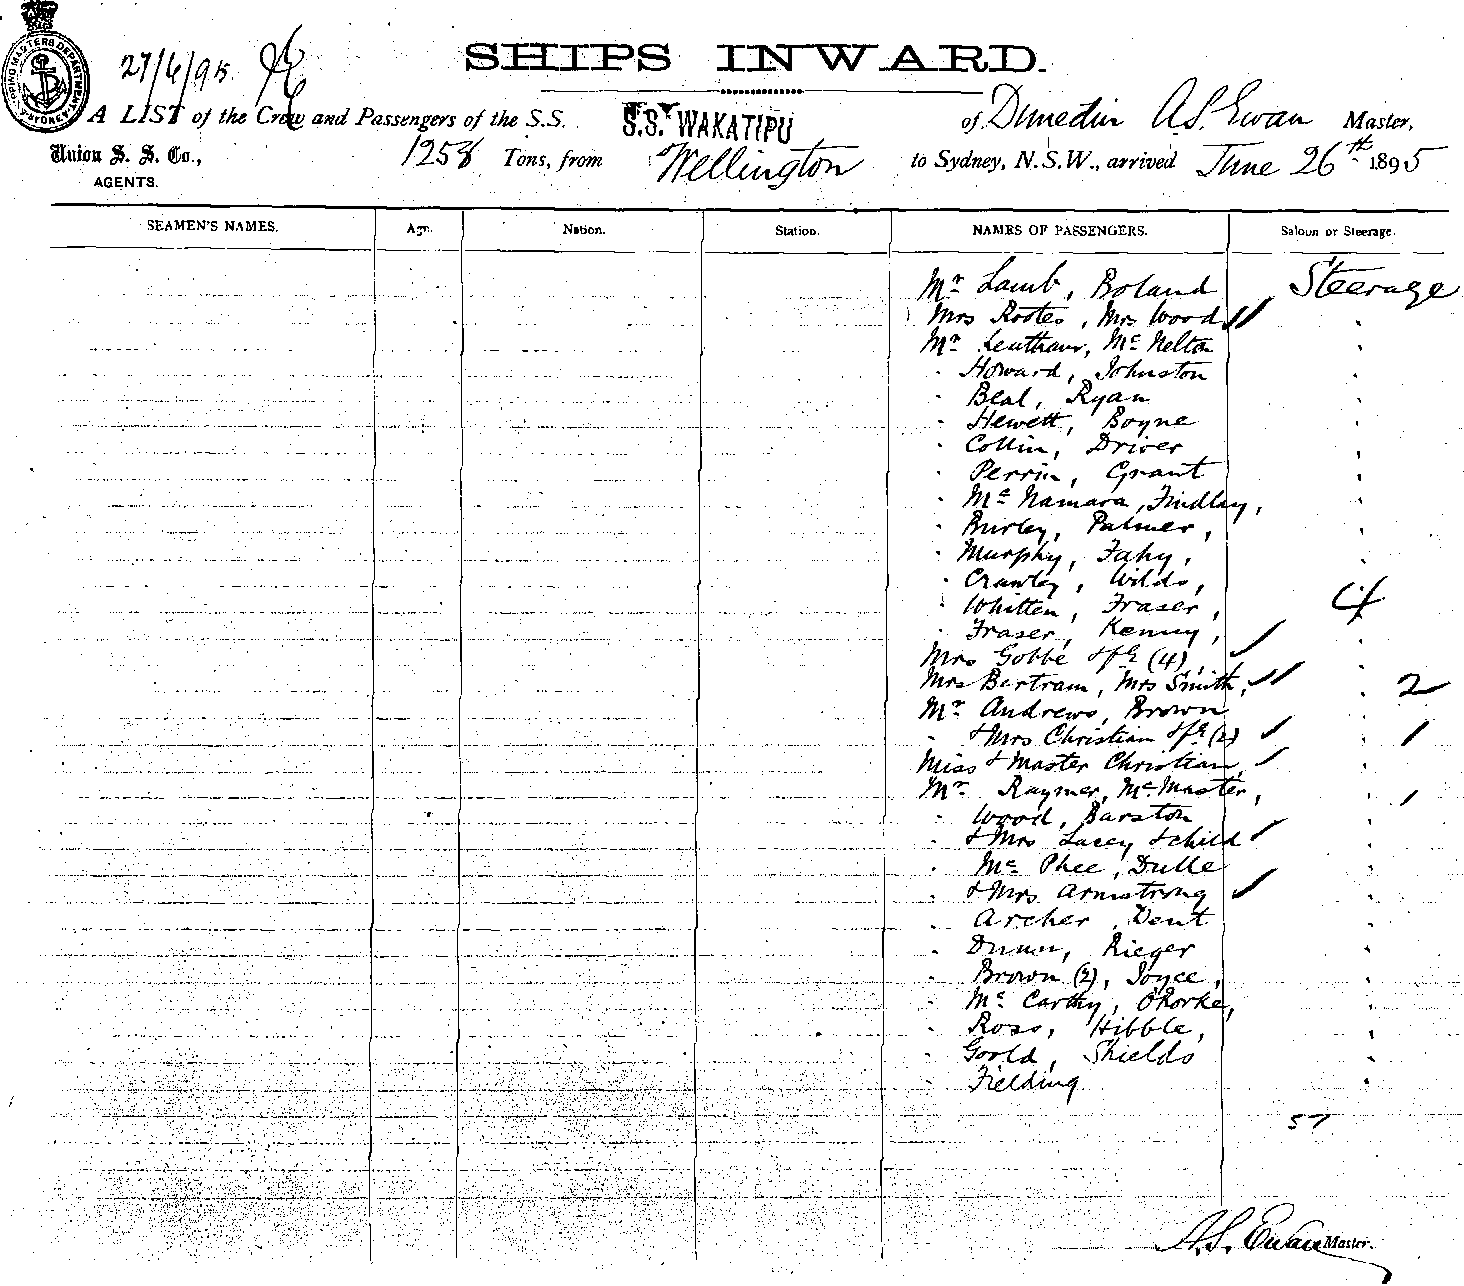 SHIPPING MASTERS DEPARTMENT SYDNEY
27/6/95
SHIPS INWARD.
A LIST of the Crew and Passengers of the S.S. S.S. WAKATIPU of Dunedin A.S. Ewan Master,
Union S. S. Co., 1258 Tons, from Wellington to Sydney, N.S.W., arrived June 26th 1895
AGENTS.
SEAMEN'S NAMES. Age. Nation. Station. NAMES OF PASSENGERS. Saloon or Steerage.
Mr Lamb, Boland Steerage
Mrs Rootes, Mrs Wood
Mr Mc Nelton
Howard, Johnston
Beal, Ryan
Hewett, Boyne
Collin, Driver
Perrin, Grant
Mc Namara, Findlay,
Burley, Palmer,
Murphy, Fahy,
Crawley, Wilds,
Whitten, Fraser, 4
Fraser, Kenny,
Mrs Gobbe & f (4),
Mrs Bertram, Mrs Smith, 2
Mr Andrews, Brown
& Mrs Christian & f (2) 1
Miss & Master Christian,
Mr Raymer, Mc Master, 1
Wood, Barston
& Mrs Lacey & child
Mc Phee, Dulle
& Mrs Armstrong
Archer, Dent
Dunn, Rieger
Brown (2), Joyce,
Mc Carthy, O'Rorke,
Ross, Hibble,
Goold, Shields
Fielding
57
A.S. Ewan Master.